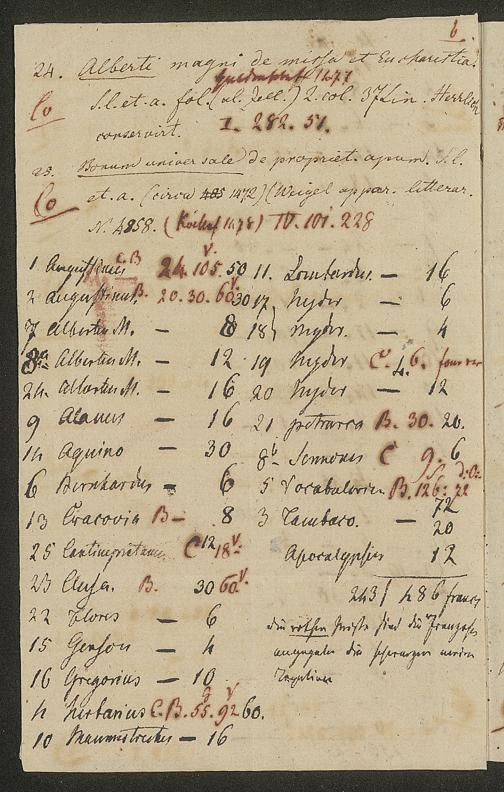 6.
24. Alberti magni de missa et Eucharistia.
1471
S. l. et a. fol. (Ul. Zell.) 2. col. 37 Lin. Herrlich
Co
conservirt. I. 282. 51.
23. Bonum universale de propriet. apum. S. l.
Co
et. a. (circa 1472) (Weigel appar. litterar.
N. 4258. (Koelhof 1478) IV. 101. 228
1 Augustinus C B 24. 105. V. 50
2 Augustinus B. 20. 30. 60 V. 30
7 Albertus M. — 8
8a Albertus M. — 12
24 Albertus M. — 16
9 Alanus — 16
14 Aquino — 30
6 Bernhardus — 6
13 Cracovia B — 8
25 Cantimpratanus C 12 18 V.
23 Cusa. B. 30 60 V.
22 Flores — 6
15 Gerson — 4
16 Gregorius — 10
4 herbarius C. B. 55. 92 V 60.
10 Mammotrectus — 16
11. Lombardus. — 16
17 Nyder — 6
18 Nyder. — 4
19 Nyder C. 4. 6.
20 Nyder — 12
21 petrarca B. 30. 20.
8b Sermones C 9. 6
5 Vocabularius B. 126: 72
3 Tambaco. — 20
Apocalypsis 12
243 / 486 francs
die rothen sind die Franzosen
angegeben die schwarzen meine